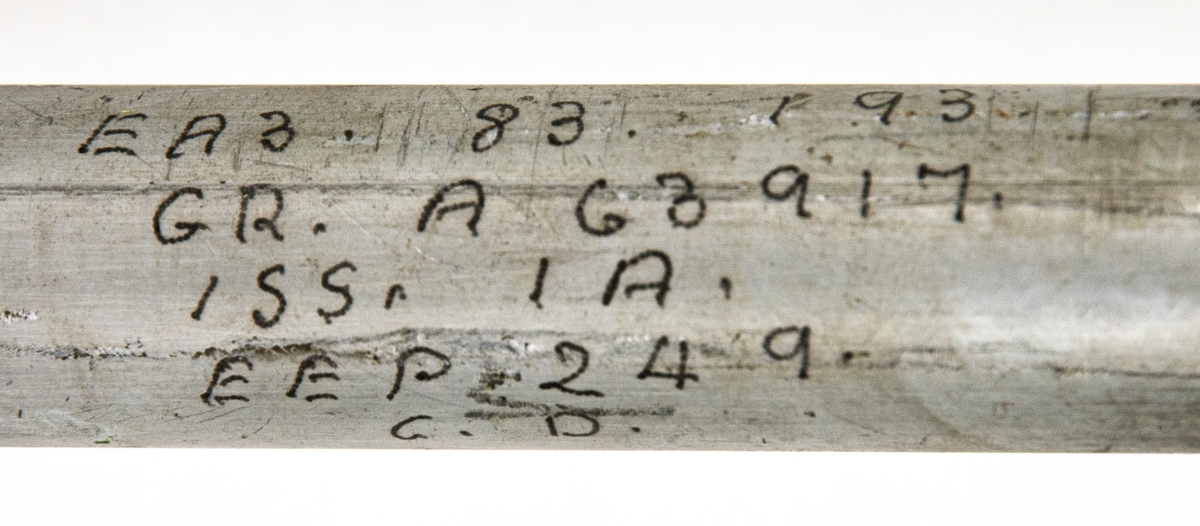 EA3. 83. 1 93
GR. A 63917.
ISS. 1A.
EEP 249.
C. D.